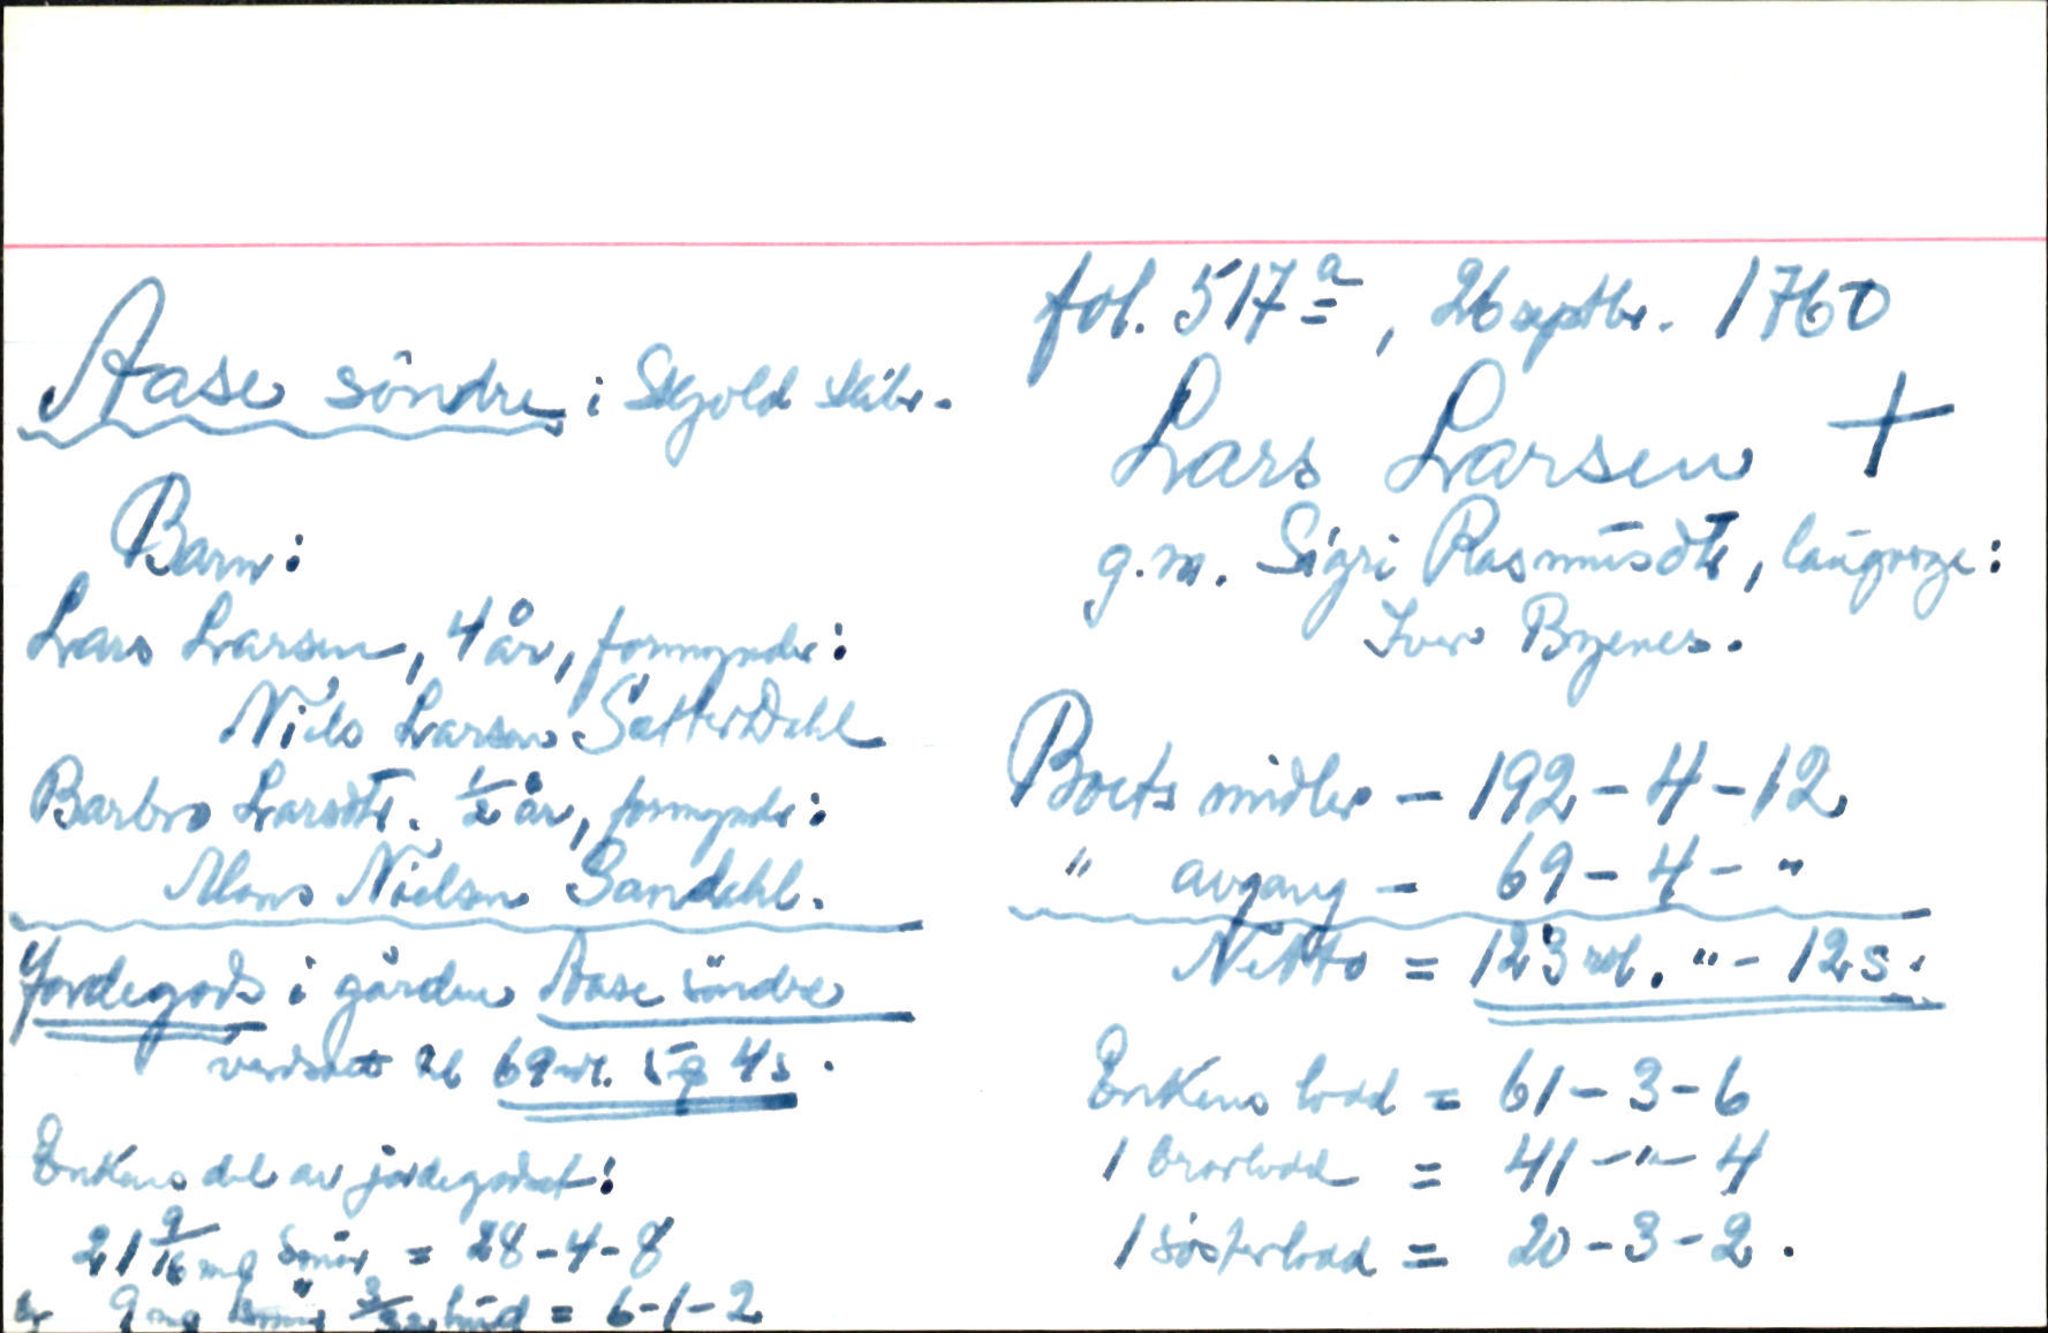 fol. 517 a, 26 septbr. 1760
Aase söndre i Skjold skibr.
Lars Larsen +
g.m. Sigri Rasmusdtr, laugverge:
Iver Byenes.
Barn:
Lars Larsen, 4 år, formynder:
Niels Larsen SætterDahl
Barbro Larsdtr. 1/2 år, formynder:
Mons Nielsen Sandahl.
Jordegods i gården Aase söndre
verdsatt til 69 rdl. 5 4s.
Enkens del av jordegodset:
21 9/16 mg smör = 28-4-8
9 mg smör 3/32 hud = 6-1-2
Boets midler - 192-4-12
" avgang - 69-4-"
Netto = 123 rdl. "- 12 s.
Enkens lodd = 61-3-6
1 brorlodd = 41-"-4
1 søsterlodd = 20-3-2.